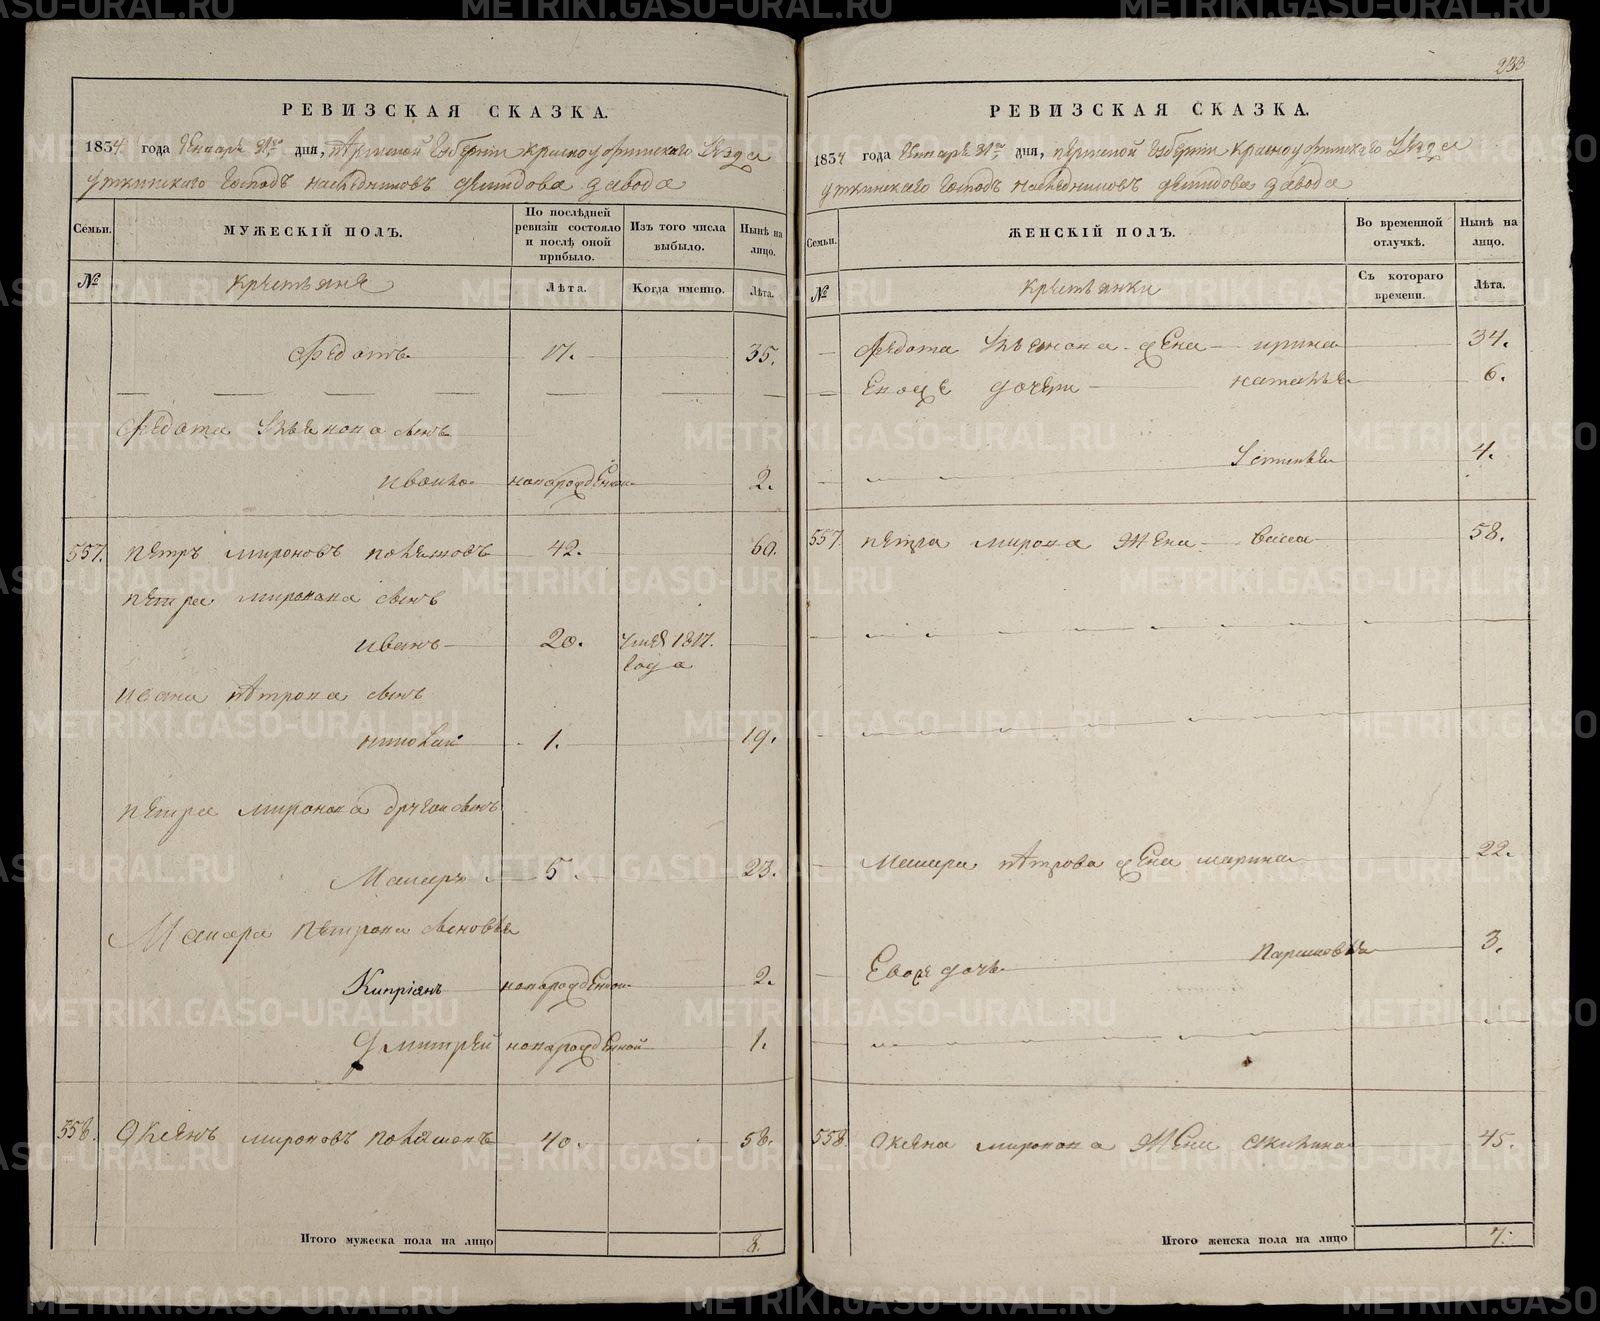 233
РЕВИЗСКАЯ СКАЗКА.
1834 года Генваря 31го дня, Пермской губернии Красноуфимскаго уезда
Уткинскаго господъ наследниковъ Демидова завода
Семьи. МУЖЕСКІЙ ПОЛЪ. По послѣдней ревизіи состояло и послѣ оной прибыло. Изъ того числа выбыло. Нынѣ на лицо.
№ крестьяне Лѣта. Когда именно. Лѣта.
Федотъ 17. 35.
Федота сынъ
новорожденной 2.
557. Петръ мироновъ 42. 60.
петра миронова сынъ
иванъ 20. 1817. года
ивана петрова сынъ
1. 19.
петра миронова другой сынъ
Макаръ 5. 23.
Макара петрова сыновья
Кипріянъ новорожденной 2.
Дмитрей новорожденной 1.
558. мироновъ 40. 58.
Итого мужеска пола на лицо 8.
РЕВИЗСКАЯ СКАЗКА.
1834 года Генваря 31го дня, пермской губернии Красноуфимскаго уезда
уткинскаго господъ наследниковъ демидова завода
Семьи. ЖЕНСКІЙ ПОЛЪ. Во временной отлучкѣ. Нынѣ на лицо.
№ крестьянки Съ котораго времени. Лѣта.
Федота жена ирина 34.
Еноже дочери наталья 6.
устинья 4.
557 петра миронова жена васса 58.
Макара петрова жена марина 22.
Евоже дочь парасковья 3.
558 миронова жена акилина 45.
Итого женска пола на лицо 7.